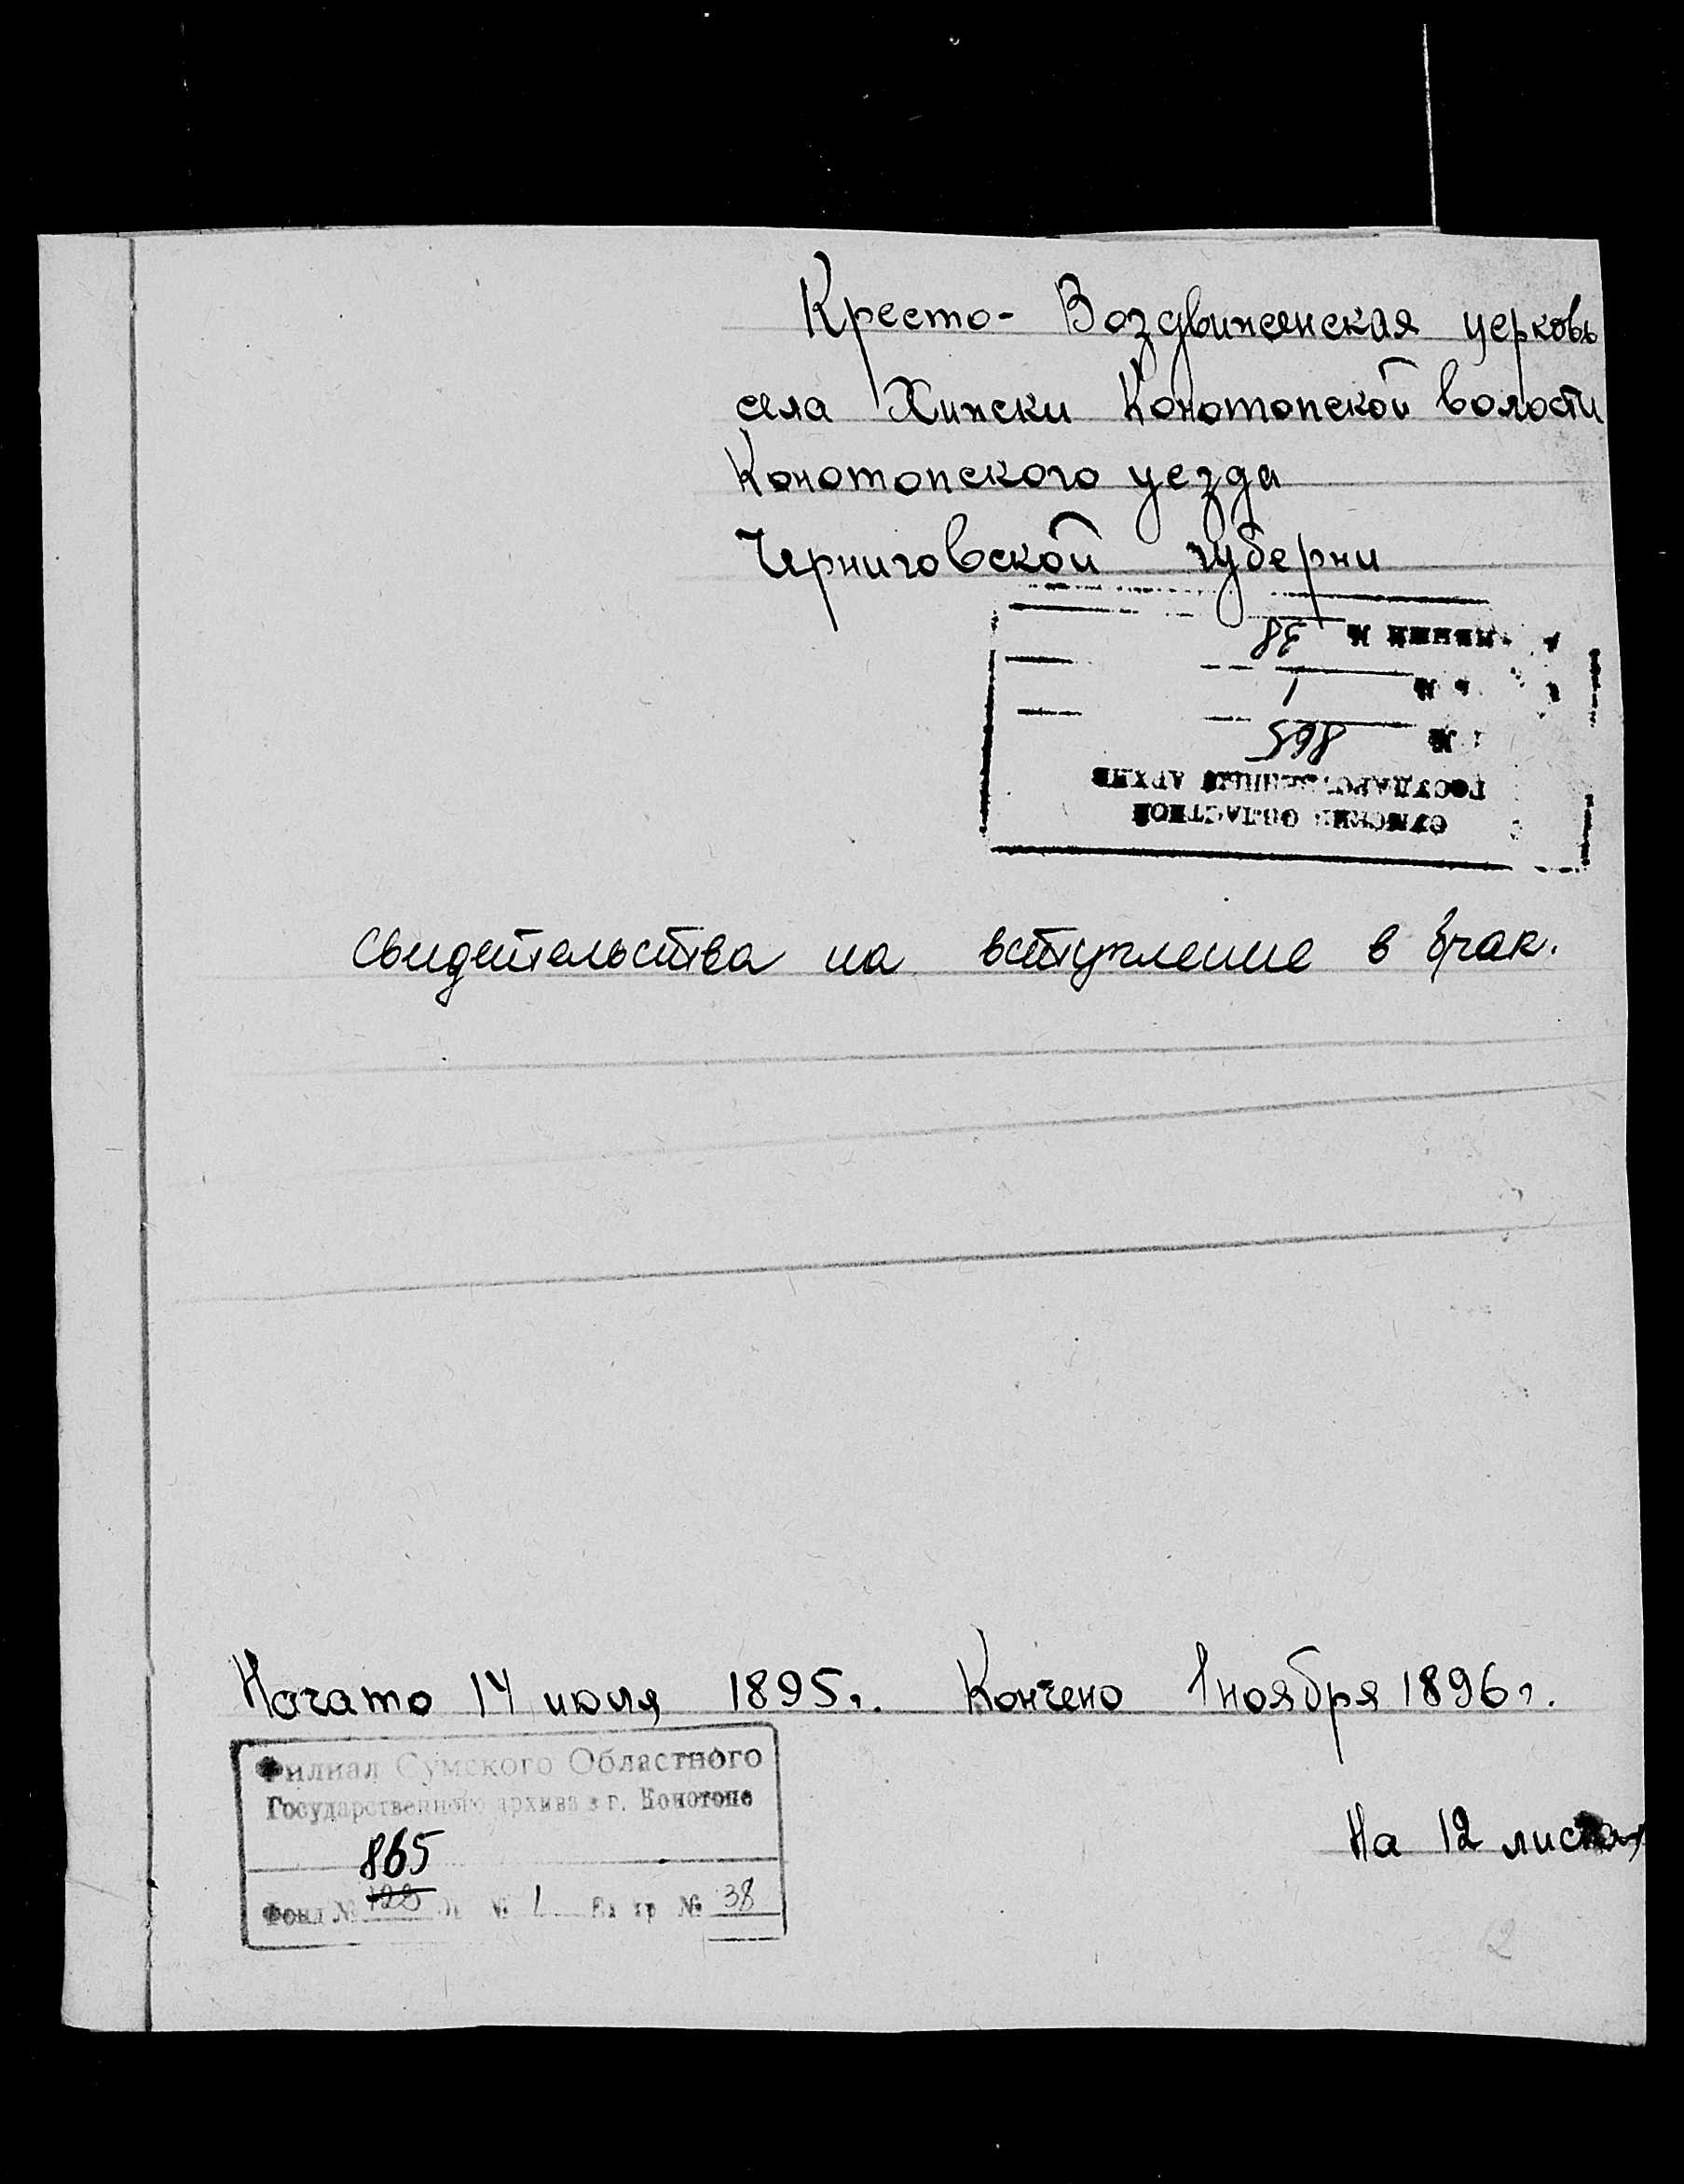 Кресто- Воздвиженская церковь
села Хижки Конотопской волости
Конотопского уезда
Черниговской губерни
СУМСКИЙ ОБЛАСТНОЙ
ГОСУДАРСТВЕННЫЙ АРХИВ
№ 865
№ 1
№ 38
Свидетельства на вступление в брак.
Начато 14 июля 1895г. Кончено 1 ноября 1896г.
Филиал Сумского Областного
Государственного архива в г. Конотопе
865
Фонд № 123 № 1 Ед хр № 38
На 12 листах
2